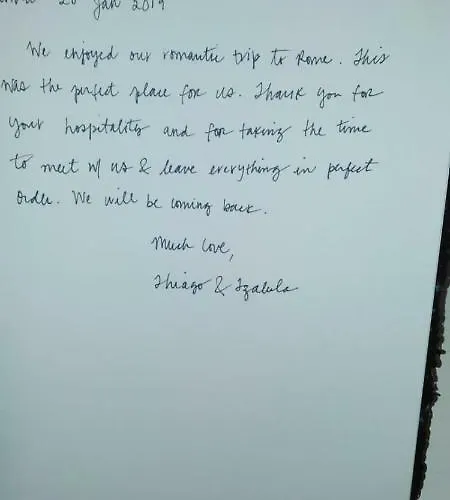 20 Jan 2019
We enjoyed our romantic trip to Rome. This
was the perfect place for us. Thank you for
your hospitality and for taking the time
to meet w/ us & leave everything in perfect
order. We will be coming back.
Much love,
Thiago & Izabela